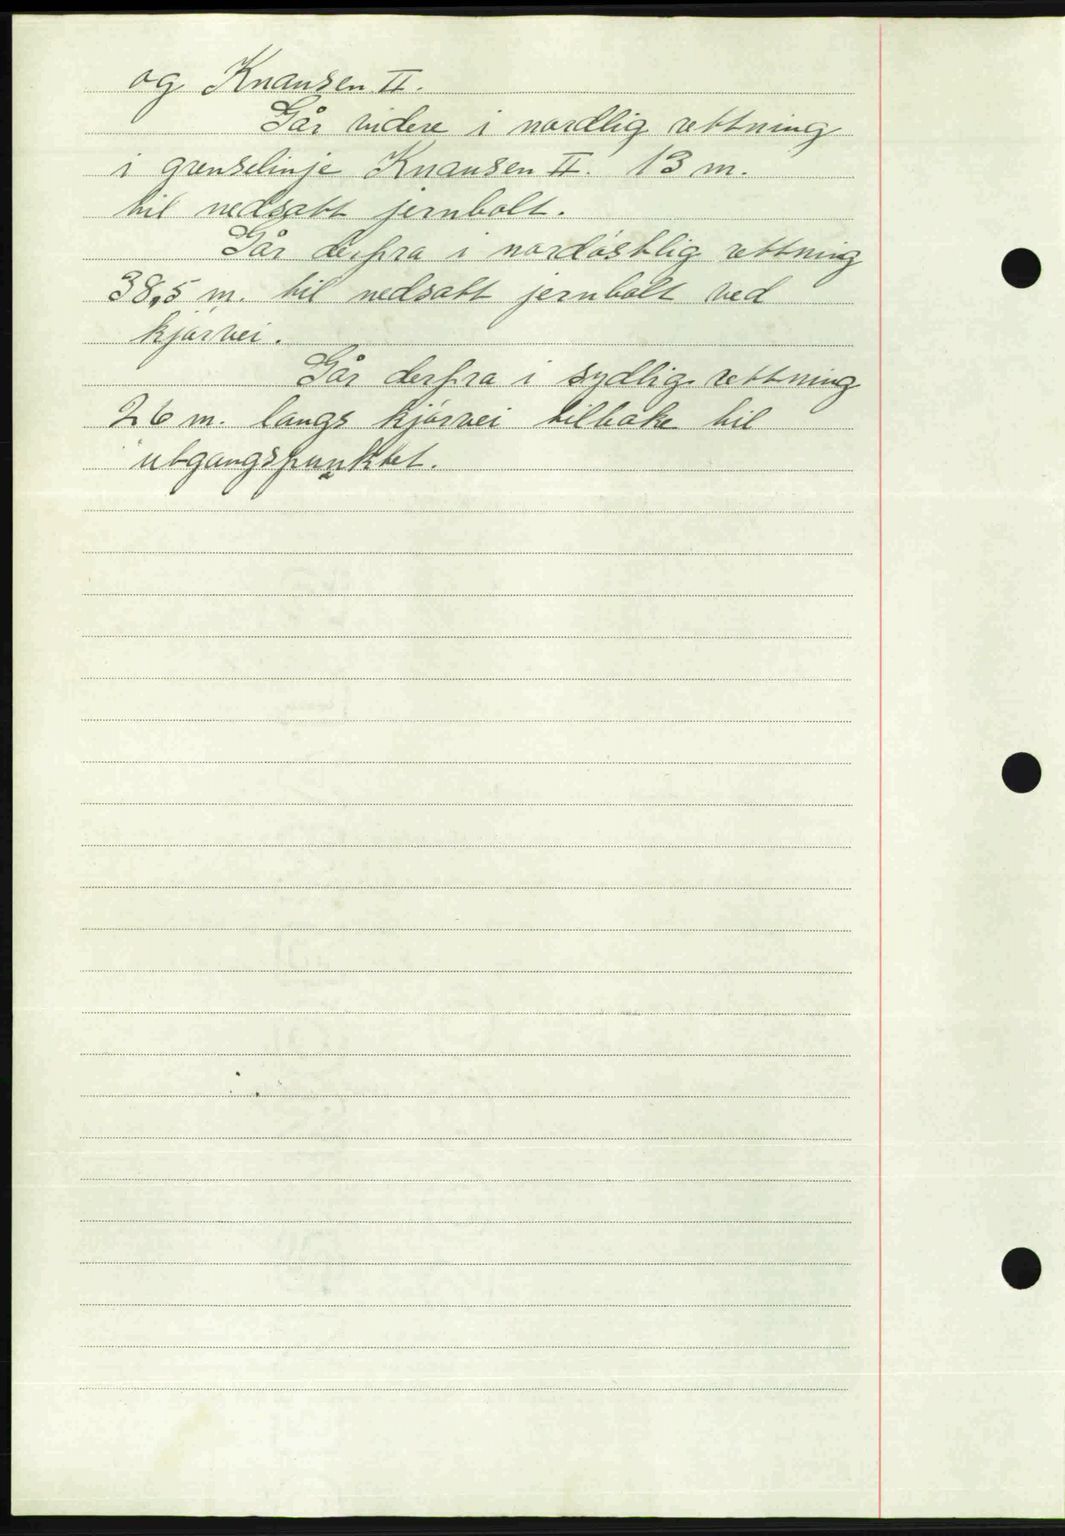 og Knausen II.
Går videre i nordlig rettning
i grenselinje Knausen II. 13 m.
til nedsatt jernbolt.
Går derfra i nordöstlig rettning
38,5 m. til nedsatt jernbolt ved
kjörvei.
Går derfra i sydlig rettning
26 m. langs kjörvei tilbake til
utgangspunktet.